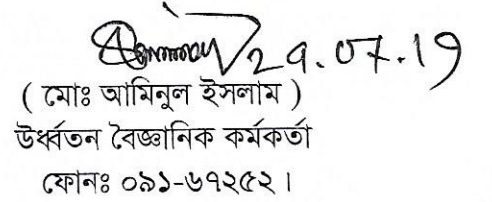 29.07.19
( মোঃ আমিনুল ইসলাম )
উর্ধ্বতন বৈজ্ঞানিক কর্মকর্তা
ফোনঃ ০৯১-৬৭২৫২।